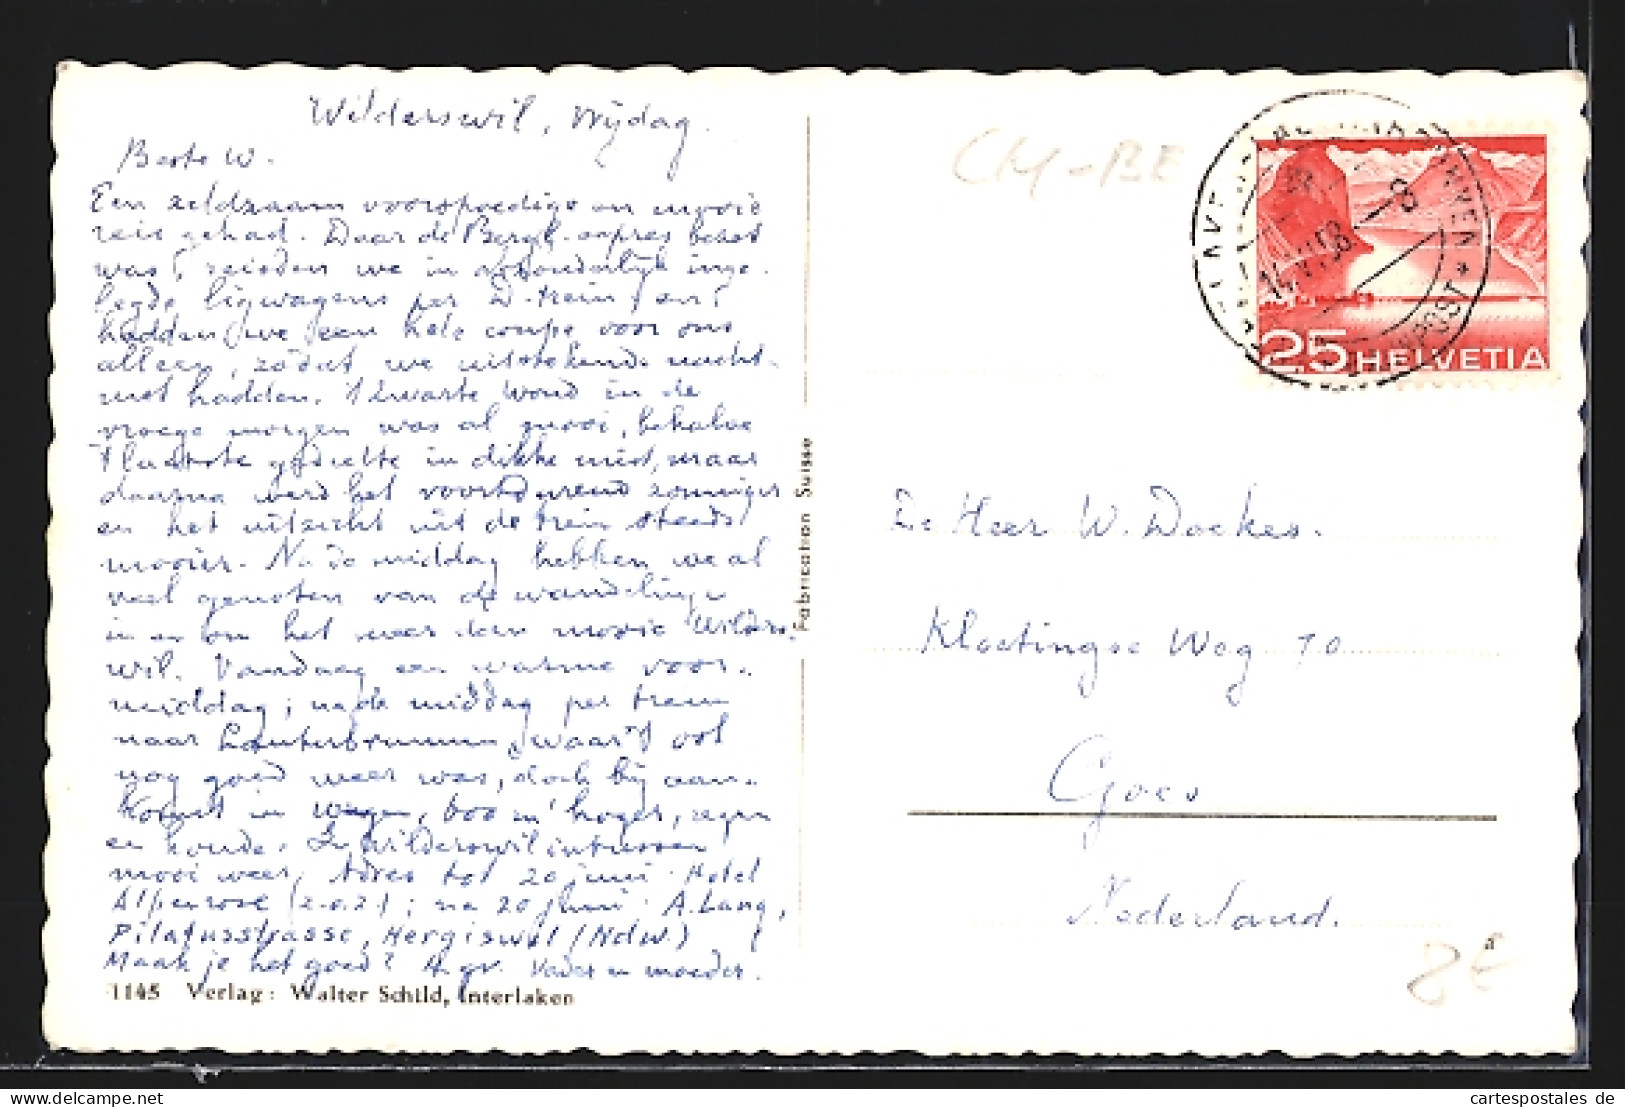 Wilderswil, vrijdag.
Beste W.
Een zeldzaam voorspoedige en mooie
reis gehad. Daar de Bergl. expres bezet
was, reisden we in afzonderlijk inge-
legde ligwagens per D-trein en
hadden we een hele coupé voor ons
alleen, zodat we uitstekende nacht-
rust hadden. in de
vroege morgen was al mooi, behalve
gedeelte in dikke mist, maar
daarna werd het voortdurend zonniger
en het uitzicht uit de trein steeds
mooier. Na de middag hebben we al
veel genoten van de wandeling
in en om het zeer mooie Wilders-
wil. Vandaag een warme voor-
middag; na de middag per trein
naar Lauterbrunnen, waar 't ook
nog goed weer was, doch bij aan-
komst in Wengen, 600 m hoger, regen
en koude. In Wilderswil intussen
mooi weer. Adres tot 20 juni Hotel
Alpenrose (z.o.z.); na 20 juni A. Lang,
Pilatusstrasse, Hergiswil (Ndw.)
Maak je het goed? Vader en moeder.
1145 Verlag: Walter Schild, Interlaken
Fabrication Suisse
CH-BE
25 HELVETIA
De Heer W. Doekes.
Kloetingse Weg 70
Goes
Nederland.
8€
cartespostales.de